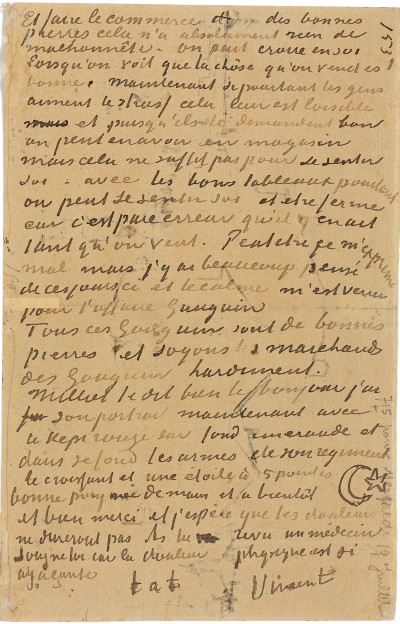 Et faire le commerce des bonnes
pierres cela n'a absolument rien de
malhonnête. On peut croire en soi
lorsqu'on voit que la chose qu'on vend est
bonne. maintenant si pourtant les gens
aiment le strass cela leur est loisible
et puisqu'ils le demandent bon
on peut en avoir en magasin
mais cela ne suffit pas pour se sentir
soi. avec les bons tableaux pourtant
on peut se sentir soi et être ferme
car c'est pure erreur qu'il y en ait
tant qu'on veut. Peut être je m'exprime
mal mais j'y ai beaucoup pensé
de ces jours ci et le calme m'est venu
pour l'affaire Gauguin
Tous ces Gauguin sont de bonnes
pierres et soyons les marchands
des Gauguin hardiment.
Milliet te dit bien le bonjour j'ai
son portrait maintenant avec
le kepi rouge sur fond emeraude et
dans ce fond les armes de son regiment
le croissant et une étoile à 5 pointes
bonne poignée de main et a bientôt
et bien merci et j'espère que les douleurs
ne dureront pas As tu revu un médecin
soigne toi car la douleur physique est si
agaçante
t. à t. Vincent